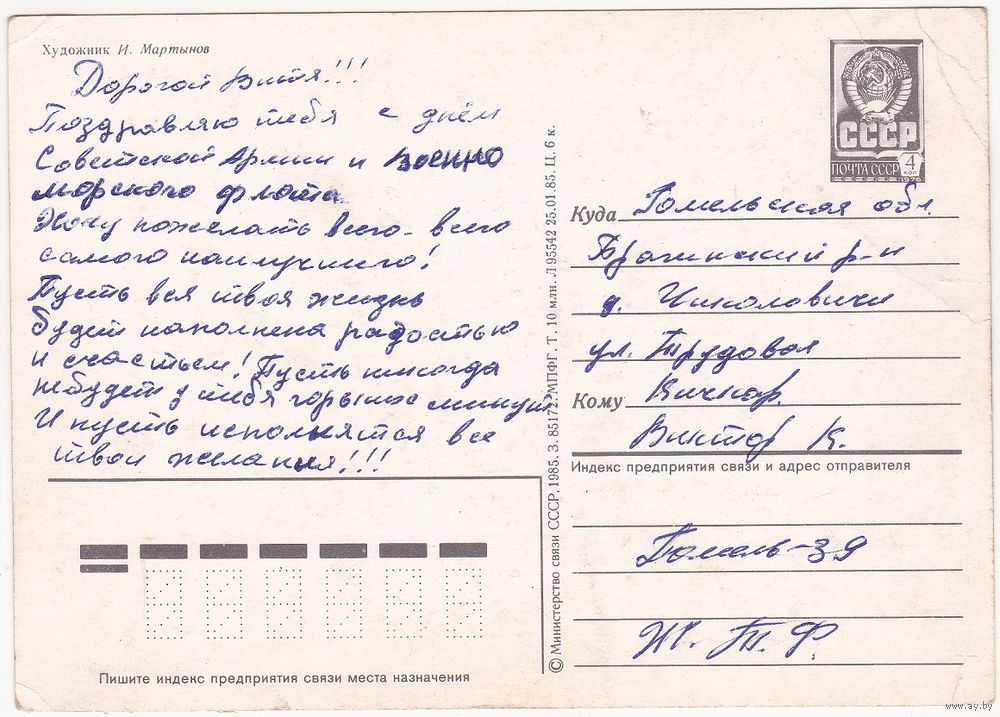 Художник И. Мартынов
Дорогой Витя!!!
Поздравляю тебя с днём
Советской Армии и Военно
морского флота
Хочу пожелать всего-всего
самого наилучшего!
Пусть вся твоя жизнь
будет наполнена радостью
и счастьем! Пусть никогда
небудет у тебя горьких минут
И пусть исполнятся все
твои желания!!!
Пишите индекс предприятия связи места назначения
© Министерство связи СССР, 1985. З. 85172. МПФГ. Т. 10 млн. Л 95542 25.01.85. Ц. 6 к.
СССР
ПОЧТА СССР
4 КОП
Куда Гомельская обл.
Брагинский р-н
д. Чиколовичи
ул. Трудовая
Кому
Виктор К.
Индекс предприятия связи и адрес отправителя
Гомель-39
Ж. Т. Ф.
www.ay.by